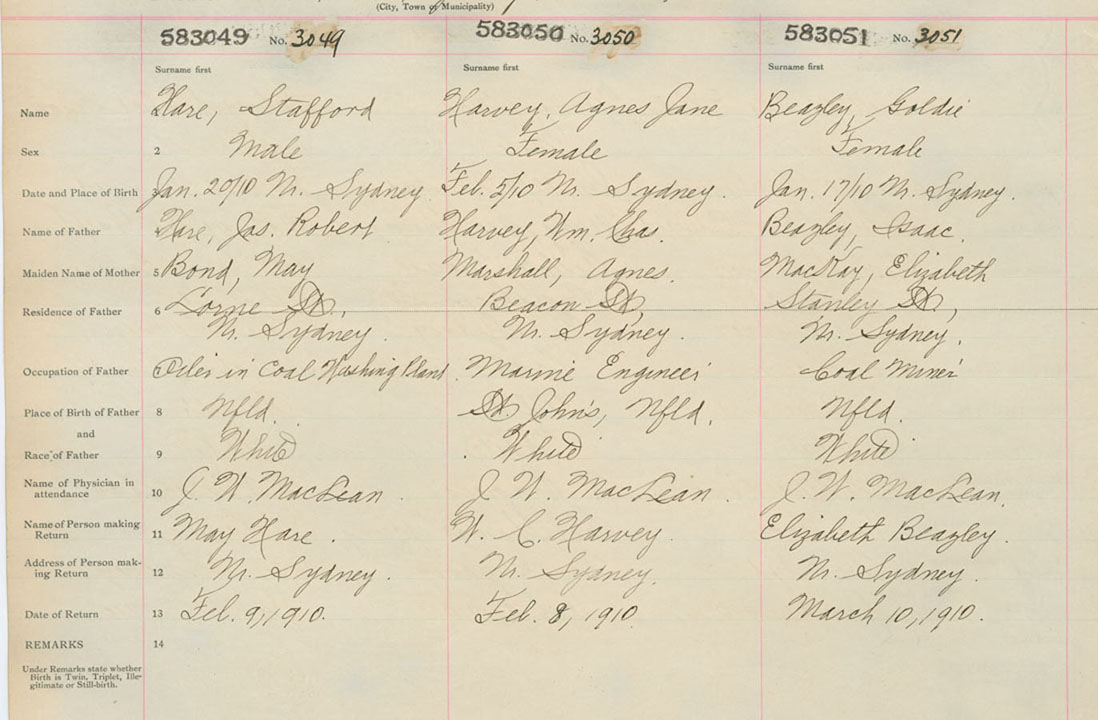 (City, Town or Municipality)
583049 No. 3049 583050 No. 3050 583051 No. 3051
Surname first Surname first Surname first
Name Hare, Stafford Harvey, Agnes Jane Beazley, Goldie
Sex 2 Male Female Female
Date and Place of Birth Jan. 20/10 N. Sydney Feb. 5/10 N. Sydney. Jan. 17/10 N. Sydney.
Name of Father Hare, Jas. Robert Harvey, Wm. Chas. Beazley, Isaac.
Maiden Name of Mother 5 Bond, May Marshall, Agnes. MacKay, Elizabeth
Residence of Father 6 Lorne St., Beacon St., Stanley St.,
N. Sydney. N. Sydney. N. Sydney.
Occupation of Father Oiler in Coal Washing Plant. Marine Engineer Coal Miner
Place of Birth of Father 8 Nfld. St. John's, Nfld. Nfld.
and
Race of Father 9 White White White
Name of Physician in
attendance 10 J. W. MacLean. J. W. MacLean. J. W. MacLean.
Name of Person making
Return 11 May Hare. W. C. Harvey. Elizabeth Beazley.
Address of Person mak-
ing Return 12 N. Sydney. N. Sydney. N. Sydney.
Date of Return 13 Feb. 9, 1910. Feb. 8, 1910. March 10, 1910.
REMARKS 14
Under Remarks state whether
Birth is Twin, Triplet, Ille-
gitimate or Still-birth.